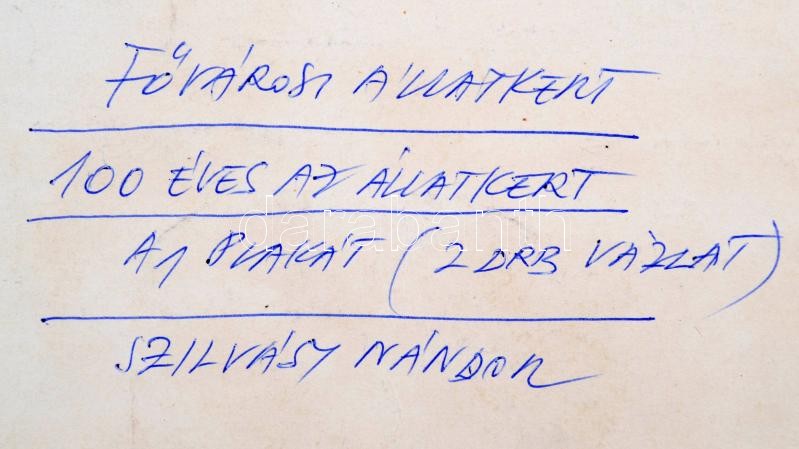 FŐVÁROSI ÁLLATKERT
100 ÉVES AZ ÁLLATKERT
darabanth
A1 PLAKÁT (2 DRB VÁZLAT)
SZILVÁSY NÁNDOR